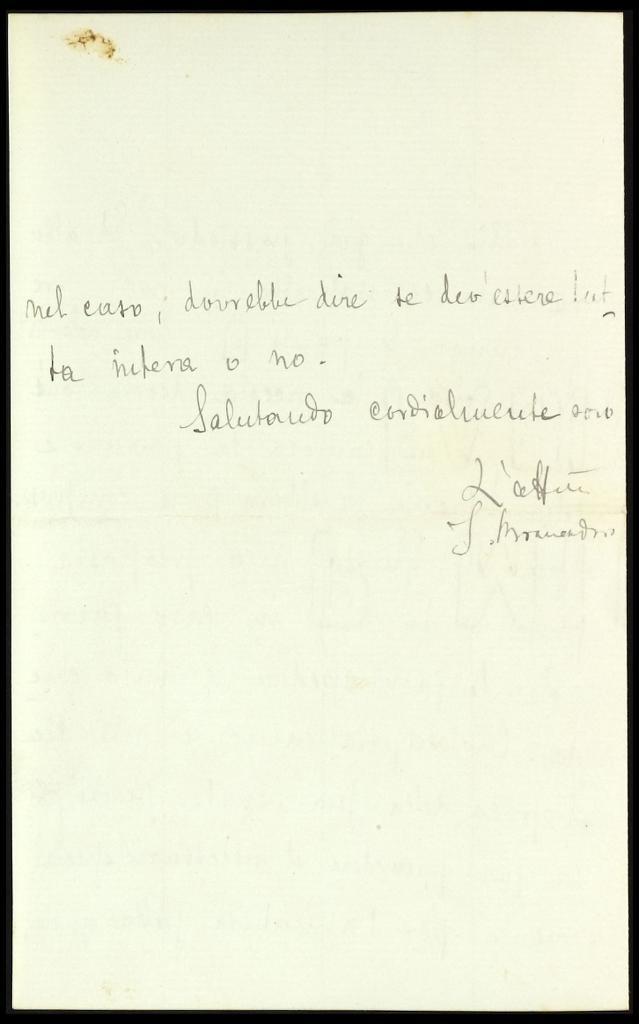 nel caso, dovrebbe dire se dev'essere tut-
ta intera o no.
Salutando cordialmente sono
L'aff.mo